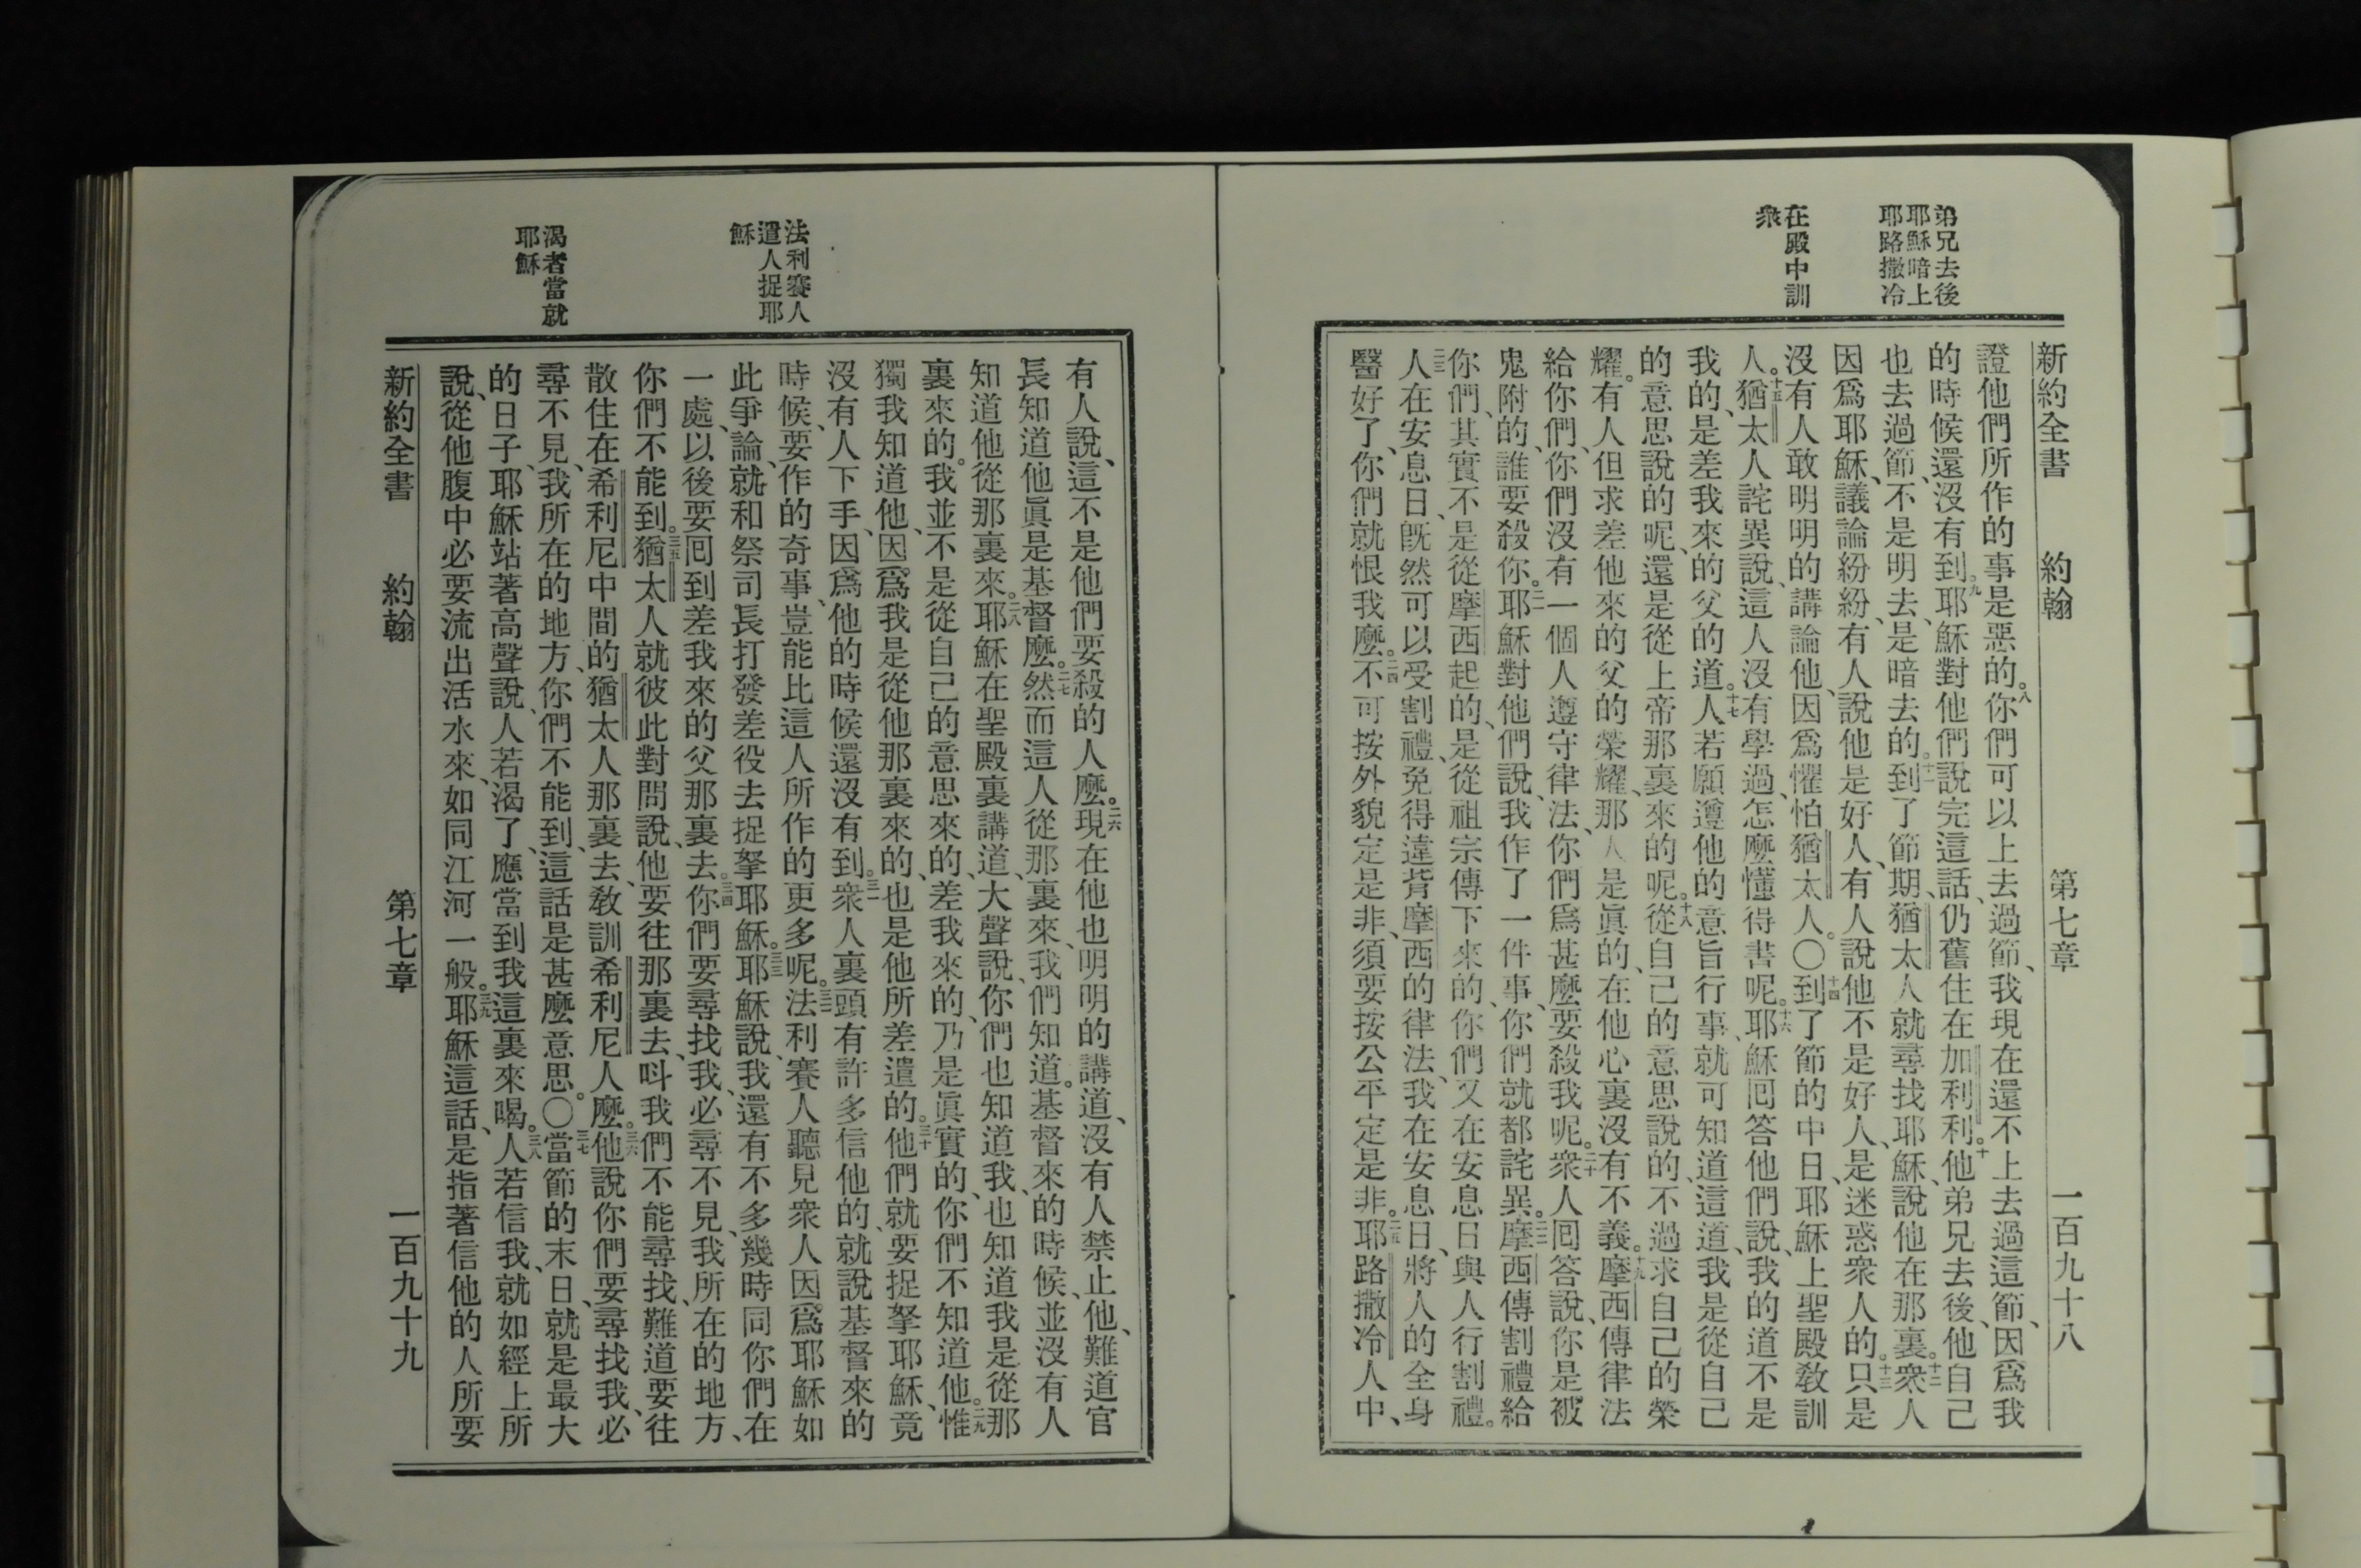 弟兄去後
耶穌暗上
耶路撒冷
在殿中訓
衆
新約全書 約翰 第七章 一百九十八
證他們所作的事是惡的。八你們可以上去過節、我現在還不上去過這節、因爲我
的時候還沒有到。九耶穌對他們說完這話、仍舊住在加利利。十他弟兄去後、他自己
也去過節、不是明去、是暗去的。十一到了節期、猶太人就尋找耶穌、說他在那裏。十二衆人
因爲耶穌、議論紛紛、有人說他是好人、有人說他不是好人、是迷惑衆人的。十三只是
沒有人敢明明的講論他、因爲懼怕猶太人。〇十四到了節的中日、耶穌上聖殿敎訓
人。十五猶太人詫異說、這人沒有學過、怎麼懂得書呢。十六耶穌回答他們說、我的道不是
我的、是差我來的父的道。十七人若願遵他的意旨行事、就可知道這道、我是從自己
的意思說的呢、還是從上帝那裏來的呢。十八從自己的意思說的、不過求自己的榮
耀。有人但求差他來的父的榮耀、那人是眞的、在他心裏沒有不義。十九摩西傳律法
給你們、你們沒有一個人遵守律法、你們爲甚麼要殺我呢。二十衆人回答說、你是被
鬼附的、誰要殺你。二一耶穌對他們說、我作了一件事、你們就都詫異。二二摩西傳割禮給
你們、其實不是從摩西起的、是從祖宗傳下來的、你們又在安息日與人行割禮。
二三人在安息日、旣然可以受割禮、免得違背摩西的律法、我在安息日、將人的全身
醫好了、你們就恨我麼。二四不可按外貌定是非、須要按公平定是非。二五耶路撒冷人中、
法利賽人
遣人捉耶
穌
渴者當就
耶穌
有人說、這不是他們要殺的人麼。二六現在他也明明的講道、沒有人禁止他、難道官
長知道他眞是基督麼。二七然而這人從那裏來、我們知道。基督來的時候、並沒有人
知道他從那裏來。二八耶穌在聖殿裏講道、大聲說、你們也知道我、也知道我是從那
裏來的。我並不是從自己的意思來的、差我來的、乃是眞實的、你們不知道他。二九惟
獨我知道他、因爲我是從他那裏來的、也是他所差遣的。三十他們就要捉拏耶穌、竟
沒有人下手、因爲他的時候還沒有到。三一衆人裏頭有許多信他的、就說基督來的
時候、要作的奇事、豈能比這人所作的更多呢。三二法利賽人聽見衆人因爲耶穌如
此爭論、就和祭司長打發差役去捉拏耶穌。三三耶穌說、我還有不多幾時同你們在
一處、以後要回到差我來的父那裏去。三四你們要尋找我、必尋不見、我所在的地方、
你們不能到。三五猶太人就彼此對問說、他要往那裏去、叫我們不能尋找、難道要往
散住在希利尼中間的猶太人那裏去、敎訓希利尼人麼。三六他說你們要尋找我、必
尋不見、我所在的地方、你們不能到、這話是甚麼意思。〇三七當節的末日、就是最大
的日子、耶穌站著高聲說、人若渴了、應當到我這裏來喝。三八人若信我、就如經上所
說、從他腹中必要流出活水來、如同江河一般。三九耶穌這話、是指著信他的人所要
新約全書 約翰 第七章 一百九十九